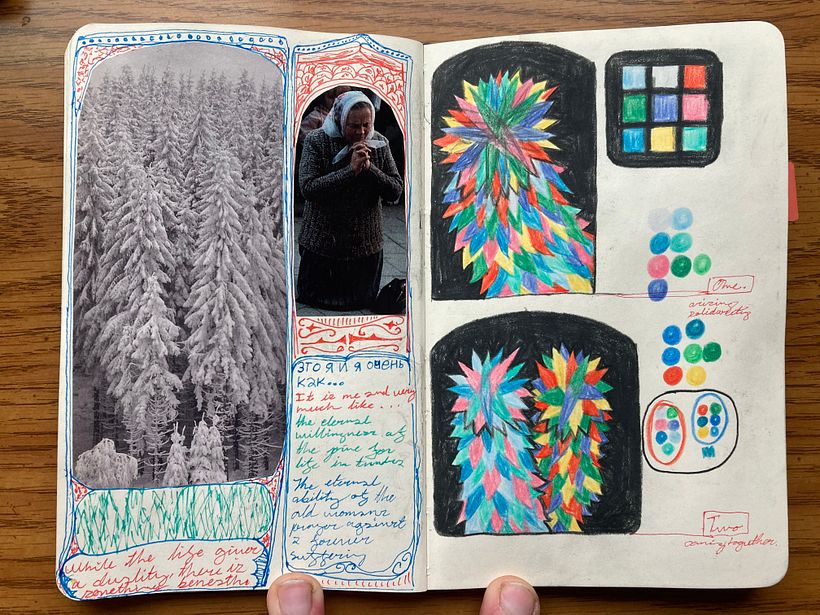 while the life giver
a duality there is
something beneath
это я и я очень
как...
It is me and very
much like...
the eternal
willingness of
the pine for
life in
The eternal
ability of the
old womans
prayer against
a
suffering
One.
arising
solidarity
Two
coming together.